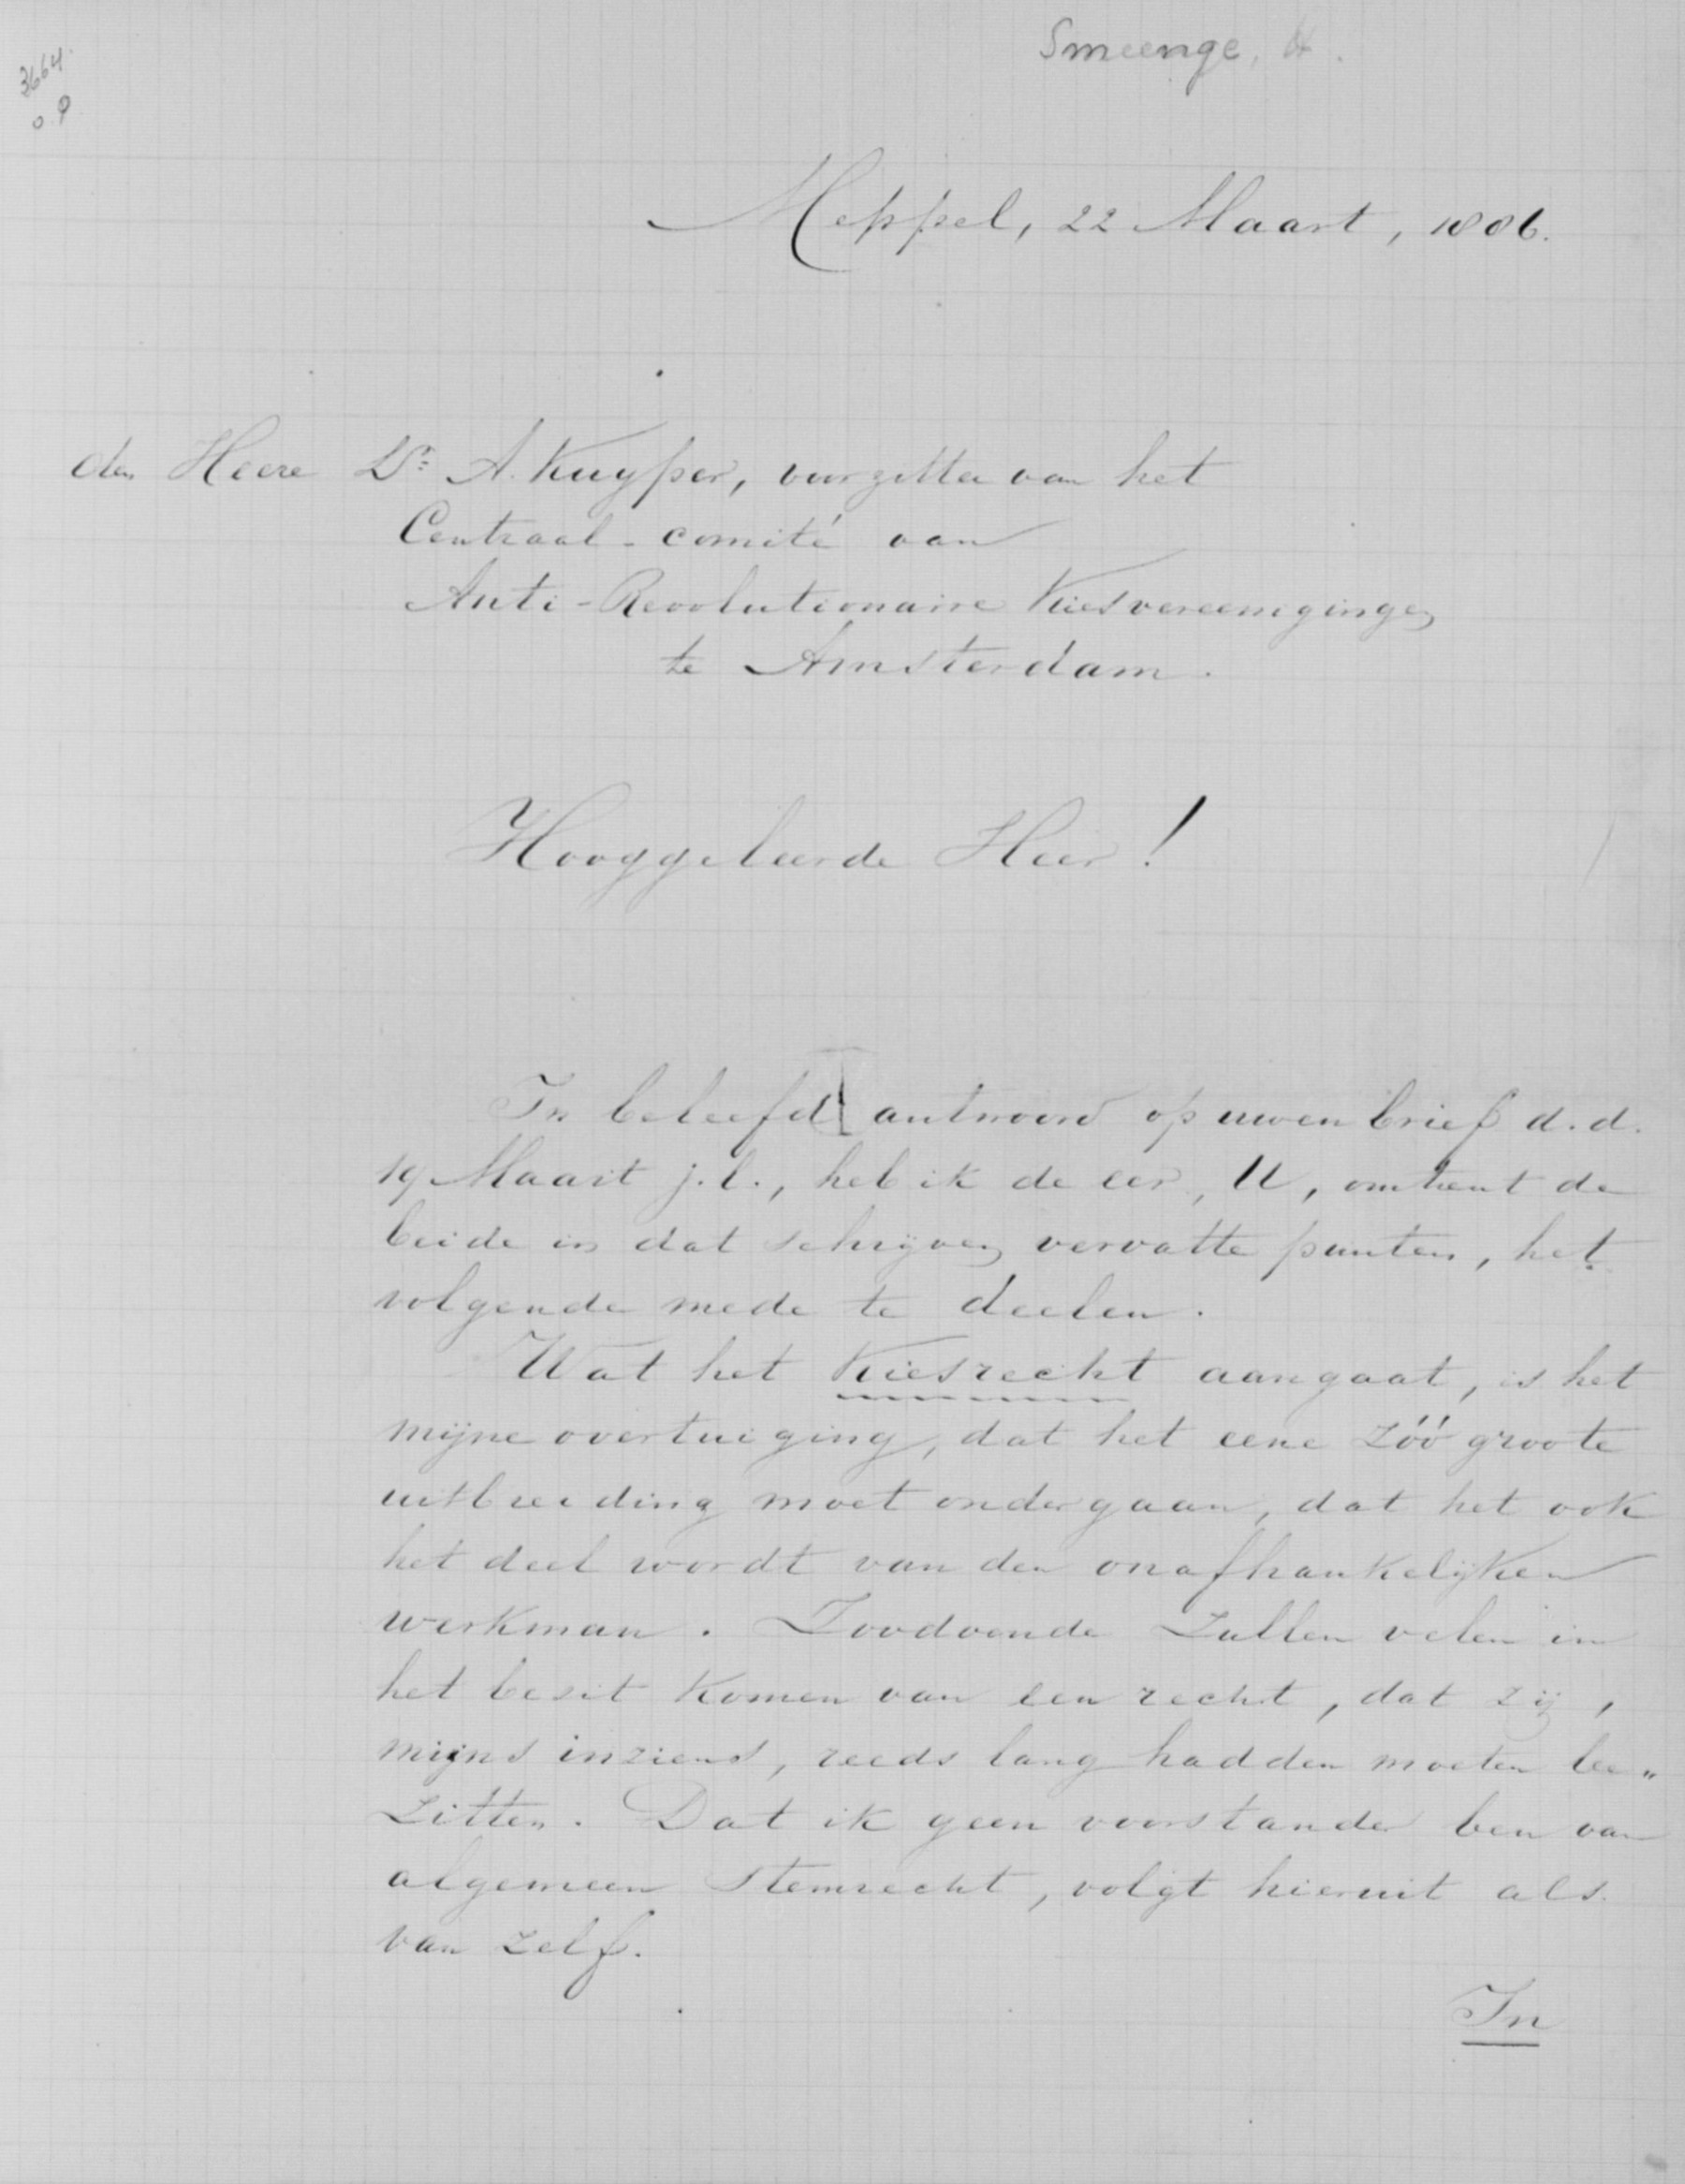 Smeenge, H.
3664.
Meppel, 22 Maart, 1886.
den Heere Dr. A. Kuyper, voorzitter van het
Centraal-comité van
Anti-Revolutionaire Kiesvereenigingen
te Amsterdam.
Hooggeleerde Heer!
In beleefd antwoord op uwen brief d.d.
19 Maart j.l., heb ik de eer, U, omtrent de
beide in dat schrijven vervatte punten, het
volgende mede te deelen.
Wat het Kiesrecht aangaat, is het
mijne overtuiging, dat het eene zóó groote
uitbreiding moet ondergaan, dat het ook
het deel wordt van den onafhankelijken
werkman. Zoodoende zullen velen in
het bezit komen van een recht, dat zij,
mijns inziens, reeds lang hadden moeten be„
zitten. Dat ik geen voorstander ben van
algemeen stemrecht, volgt hieruit als
van zelf.
In